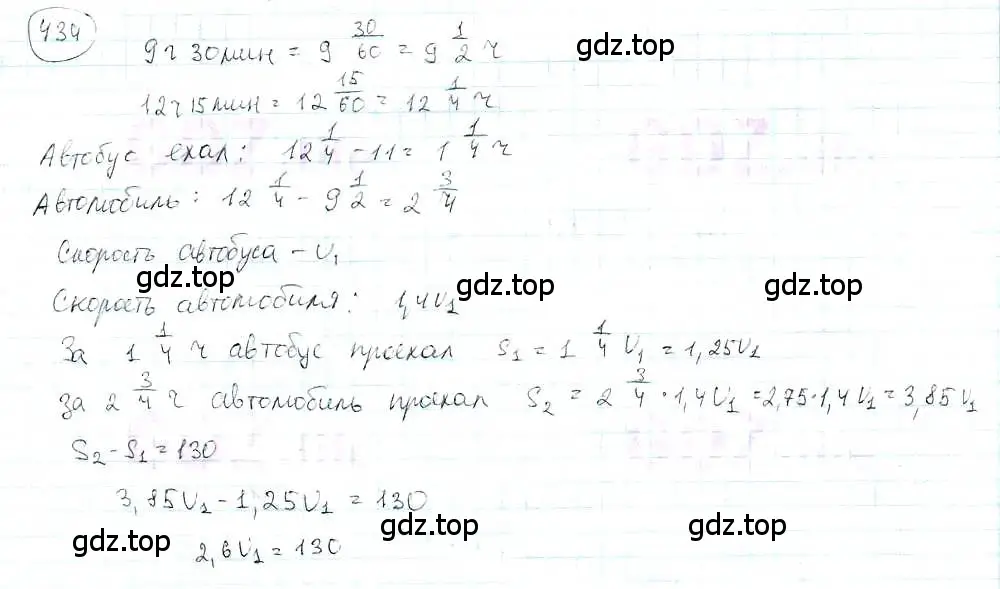 434
9 ч 30 мин = 9 30/60 = 9 1/2 ч
gdz.top gdz.top
12 ч 15 мин = 12 15/60 = 12 1/4 ч
Автобус ехал: 12 1/4 - 11 = 1 1/4 ч
Автомобиль: 12 1/4 - 9 1/2 = 2 3/4
Скорость автобуса - υ₁
gdz.top gdz.top gdz.top
Скорость автомобиля: 1,4υ₁
За 1 1/4 ч автобус проехал S₁ = 1 1/4 υ₁ = 1,25υ₁
за 2 3/4 ч автомобиль проехал S₂ = 2 3/4 · 1,4υ₁ = 2,75·1,4υ₁ = 3,85υ₁
S₂ - S₁ = 130
3,85υ₁ - 1,25υ₁ = 130
gdz.top gdz.top gdz.top
2,6υ₁ = 130